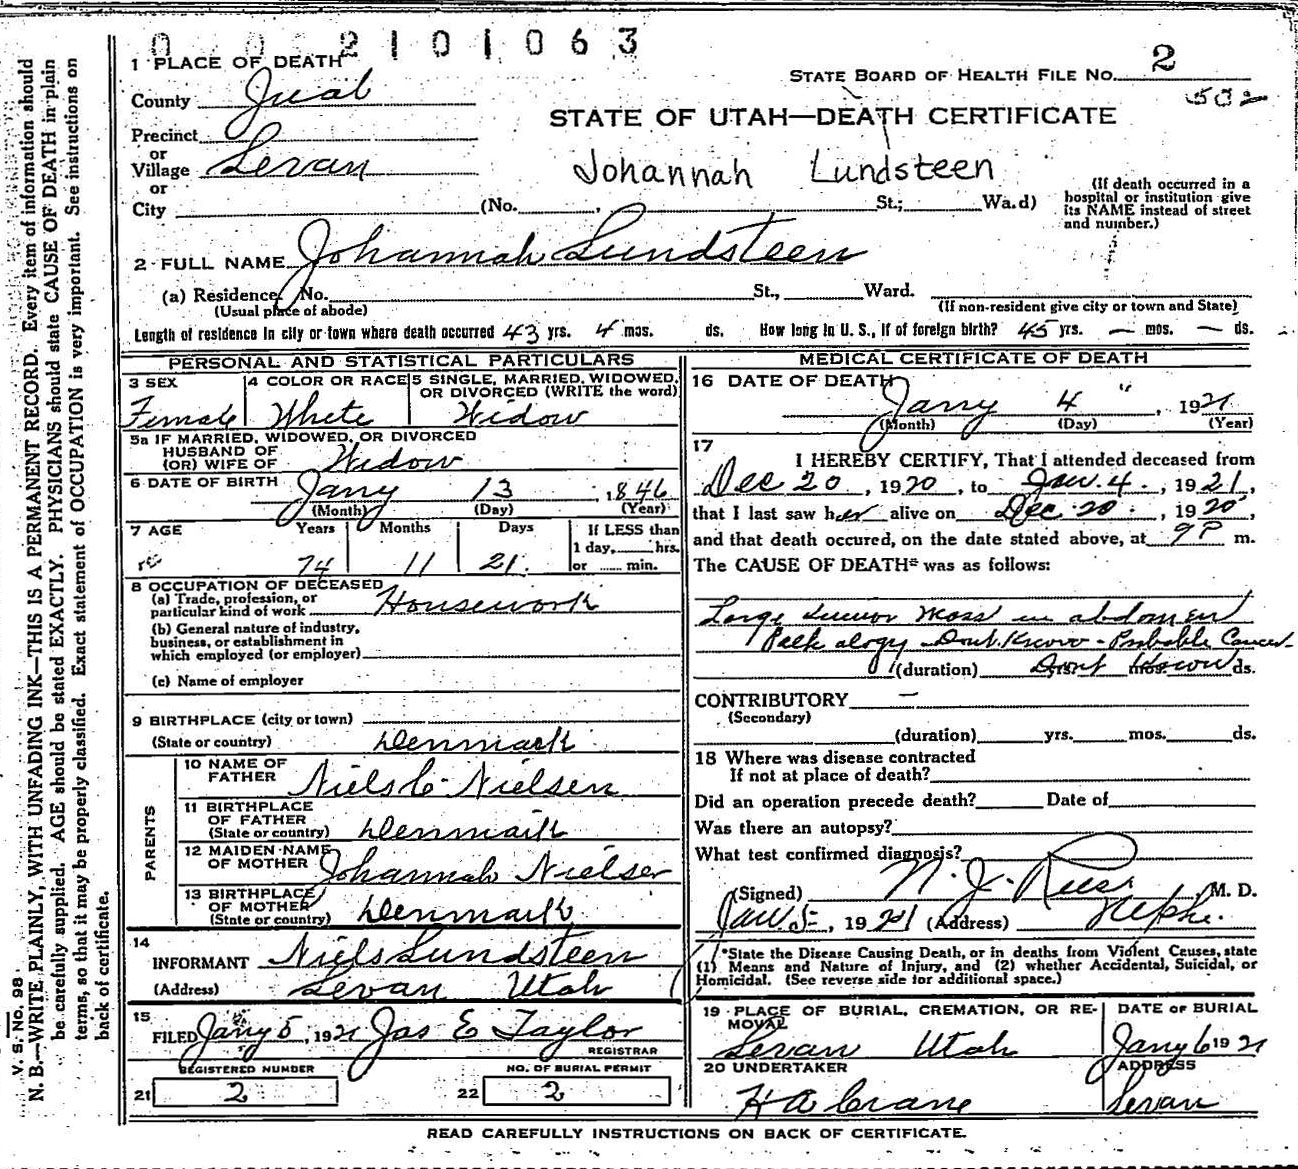 0 0 2 1 0 1 0 6 3
1 PLACE OF DEATH
County Juab
Precinct
or
Village Levan
or
City (No. , St.; Wa.d)
STATE BOARD OF HEALTH FILE NO. 2
502
STATE OF UTAH—DEATH CERTIFICATE
Johannah Lundsteen
(If death occurred in a
hospital or institution give
its NAME instead of street
and number.)
2 FULL NAME Johannah Lundsteen
(a) Residence. No. St., Ward.
(Usual place of abode) (If non-resident give city or town and State)
Length of residence in city or town where death occurred 43 yrs. 4 mos. ds. How long in U. S., if of foreign birth? 45 yrs. — mos. — ds.
PERSONAL AND STATISTICAL PARTICULARS
3 SEX 4 COLOR OR RACE 5 SINGLE, MARRIED, WIDOWED,
OR DIVORCED (WRITE the word)
Female White Widow
5a IF MARRIED, WIDOWED, OR DIVORCED
HUSBAND OF
(OR) WIFE OF Widow
6 DATE OF BIRTH Jany 13, 1846
(Month) (Day) (Year)
7 AGE Years Months Days If LESS than
1 day, hrs.
74 11 21. or min.
8 OCCUPATION OF DECEASED
(a) Trade, profession, or
particular kind of work Housework
(b) General nature of industry,
business, or establishment in
which employed (or employer)
(c) Name of employer
9 BIRTHPLACE (city or town)
(State or country) Denmark
PARENTS
10 NAME OF
FATHER Niels C. Nielsen
11 BIRTHPLACE
OF FATHER
(State or country) Denmark
12 MAIDEN NAME
OF MOTHER Johannah Nielsen
13 BIRTHPLACE
OF MOTHER
(State or country) Denmark
14
INFORMANT Niels Lundsteen
(Address) Levan Utah
15
FILED Jany 5, 1921 Jas E Taylor
REGISTRAR
REGISTERED NUMBER NO. OF BURIAL PERMIT
21 2 22 2
MEDICAL CERTIFICATE OF DEATH
16 DATE OF DEATH
Jany 4", 1921
(Month) (Day) (Year)
17
I HEREBY CERTIFY, That I attended deceased from
Dec 20, 1920, to Jan. 4., 1921,
that I last saw her alive on Dec. 20., 1920,
and that death occured, on the date stated above, at 9 P m.
The CAUSE OF DEATH* was as follows:
Large tumor mass in abdomen
Pathalogy - Dont Know - Probable Cancer-
(duration) Dont yrs. mos. Know ds.
CONTRIBUTORY —
(Secondary)
(duration) yrs. mos. ds.
18 Where was disease contracted
If not at place of death?
Did an operation precede death? Date of
Was there an autopsy?
What test confirmed diagnosis?
(Signed) N. J. Rees M. D.
Jan 5, 1921 (Address) Nephi.
*State the Disease Causing Death, or in deaths from Violent Causes, state
(1) Means and Nature of Injury, and (2) whether Accidental, Suicidal, or
Homicidal. (See reverse side for additional space.)
19 PLACE OF BURIAL, CREMATION, OR RE-
MOVAL
Levan Utah
DATE OF BURIAL
Jany 6 1921
20 UNDERTAKER
H A Crane
ADDRESS
Levan
READ CAREFULLY INSTRUCTIONS ON BACK OF CERTIFICATE.
V. S. NO. 98
N. B.—WRITE PLAINLY, WITH UNFADING INK—THIS IS A PERMANENT RECORD. Every item of information should
be carefully supplied. AGE should be stated EXACTLY. PHYSICIANS should state CAUSE OF DEATH in plain
terms, so that it may be properly classified. Exact statement of OCCUPATION is very important. See instructions on
back of certificate.